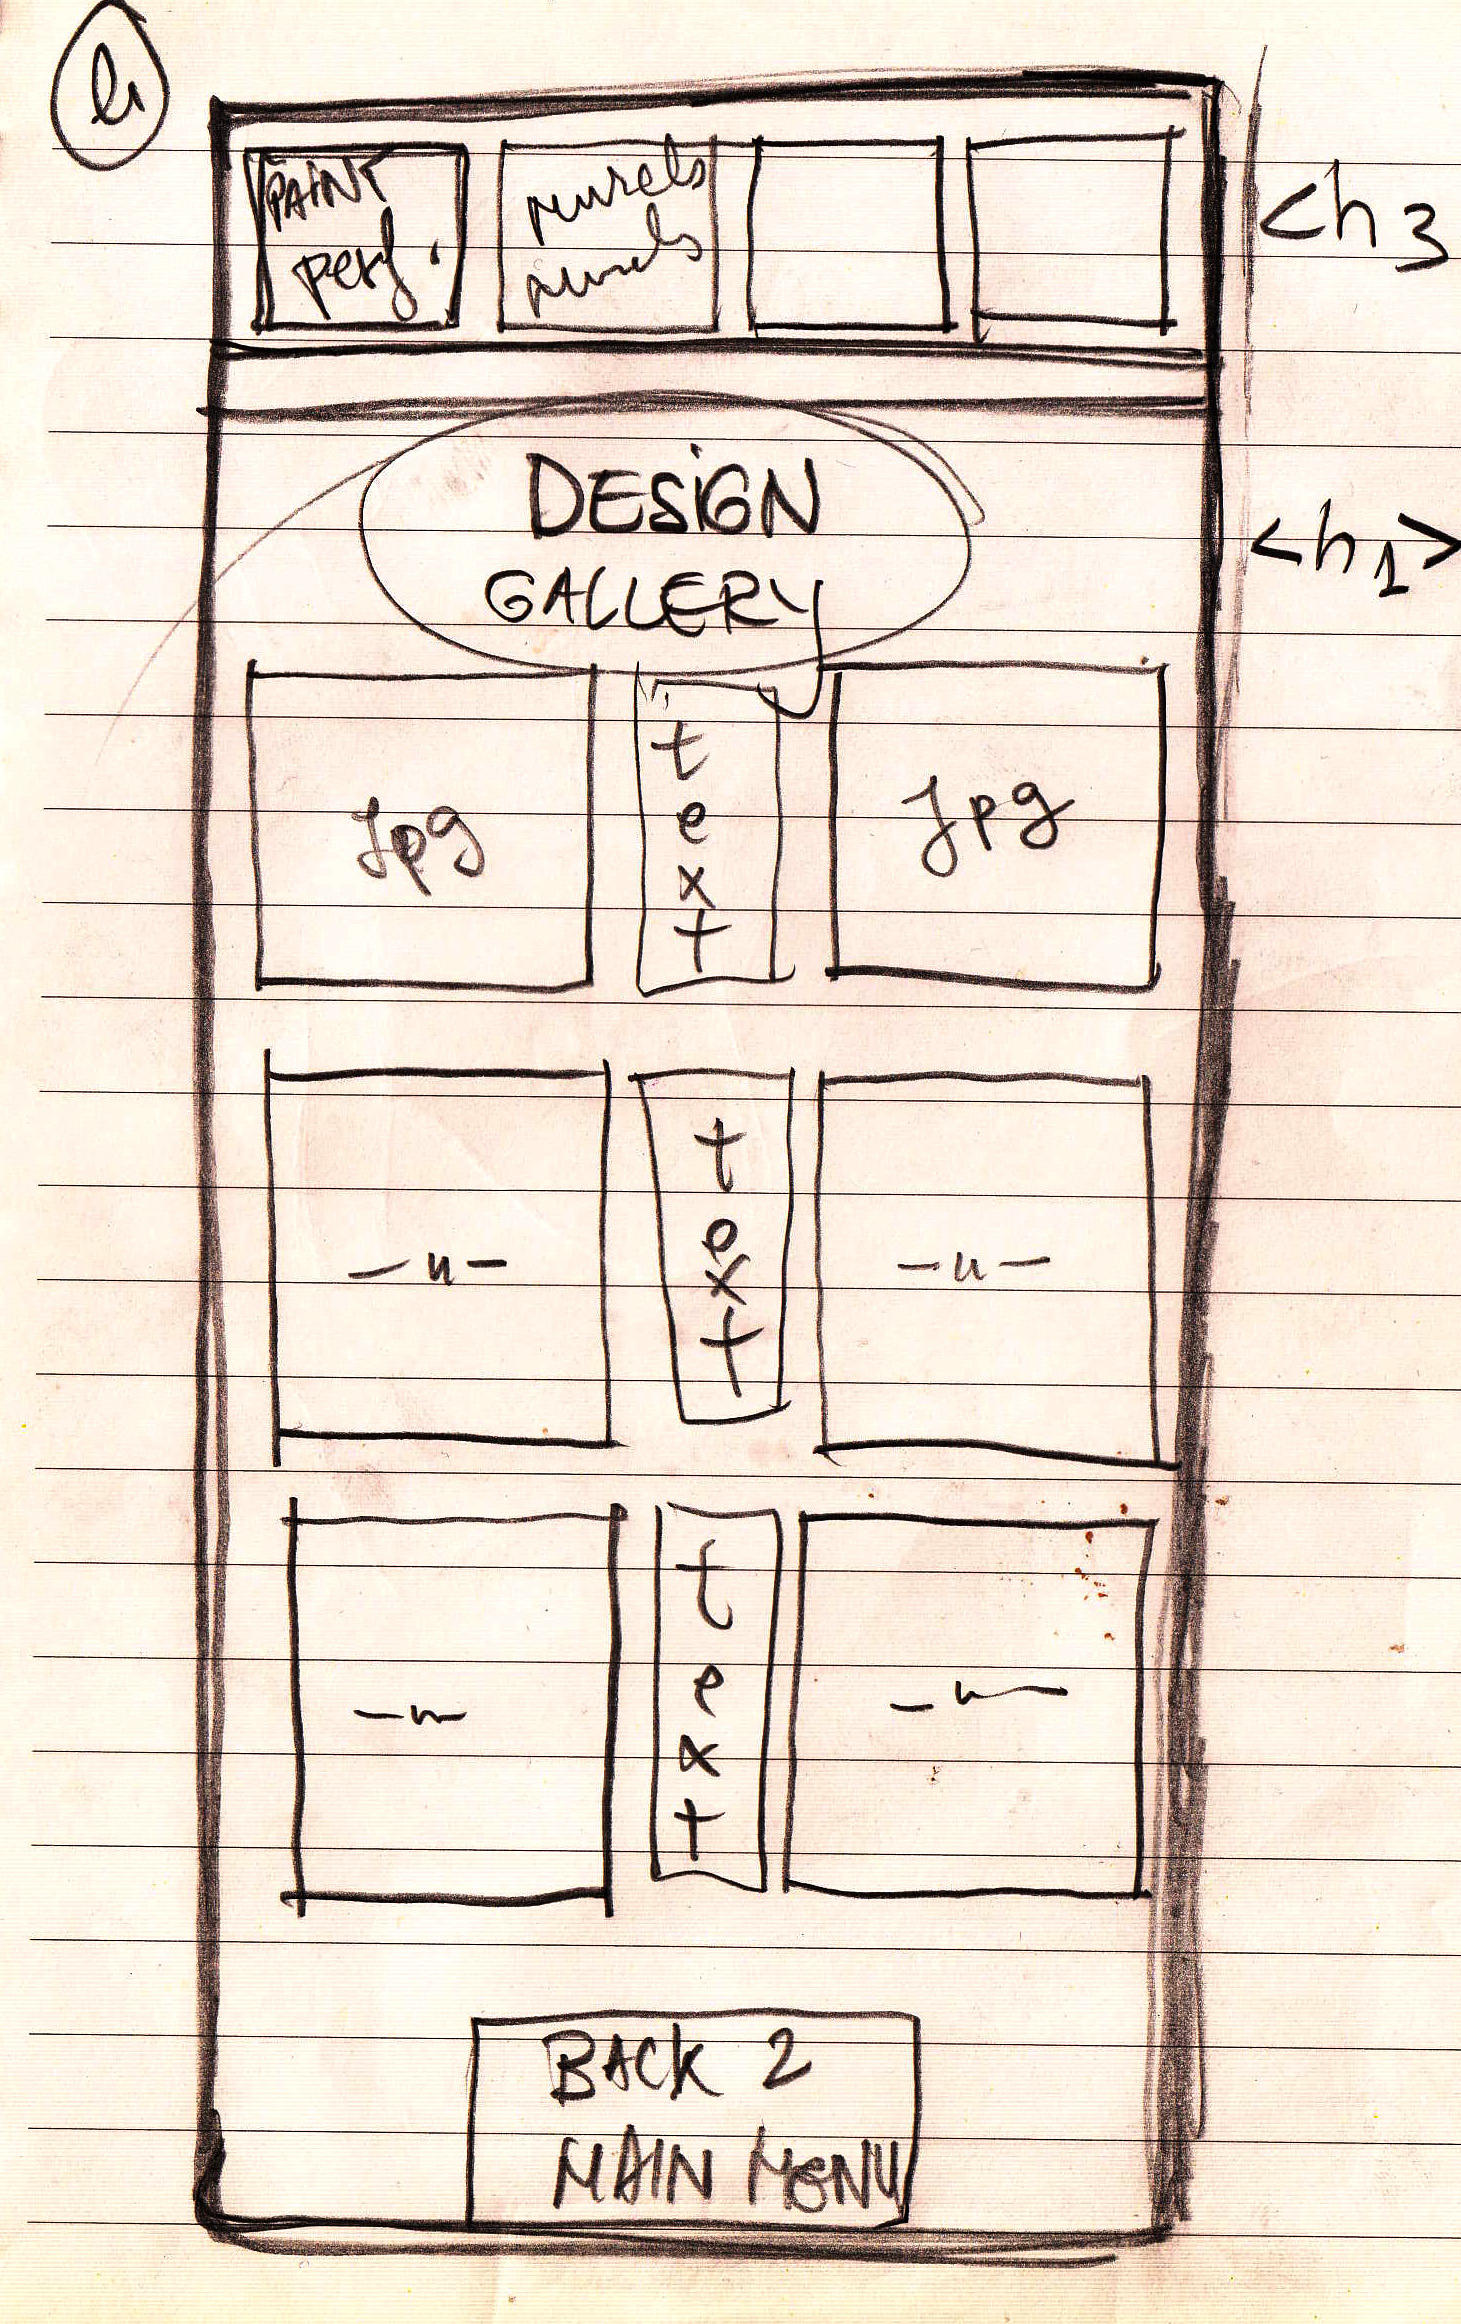 PAINT
perf.
murels
murels
<h3
DESIGN
GALLERY
<h1>
jpg
text
jpg
-〃-
text
-〃-
-〃-
text
-〃-
BACK 2
MAIN MENU